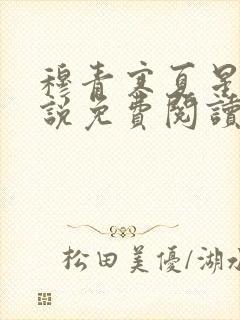 穆青寒夏星
說免費閱讀
松田美優/湖水